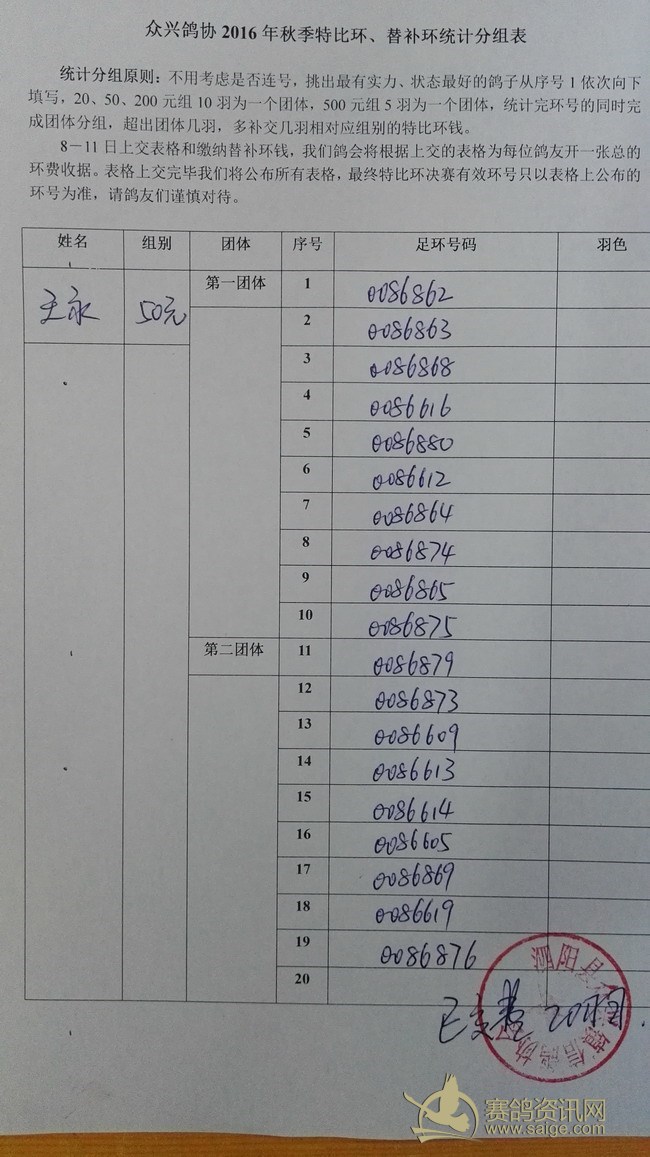 众兴鸽协 2016 年秋季特比环、替补环统计分组表
统计分组原则：不用考虑是否连号，挑出最有实力、状态最好的鸽子从序号 1 依次向下
填写，20、50、200 元组 10 羽为一个团体，500 元组 5 羽为一个团体，统计完环号的同时完
成团体分组，超出团体几羽，多补交几羽相对应组别的特比环钱。
8－11 日上交表格和缴纳替补环钱，我们鸽会将根据上交的表格为每位鸽友开一张总的
环费收据。表格上交完毕我们将公布所有表格，最终特比环决赛有效环号只以表格上公布的
环号为准，请鸽友们谨慎对待。
姓名 组别 团体 序号 足环号码 羽色
王永 50元 第一团体 1 0086862
2 0086863
3 0086868
4 0086616
5 0086880
6 0086612
7 0086864
8 0086874
9 0086865
10 0086875
第二团体 11 0086879
12 0086873
13 0086609
14 0086613
15 0086614
16 0086605
17 0086869
18 0086619
19 0086876
20
泗阳县
信鸽协
赛鸽资讯网
www.saige.com